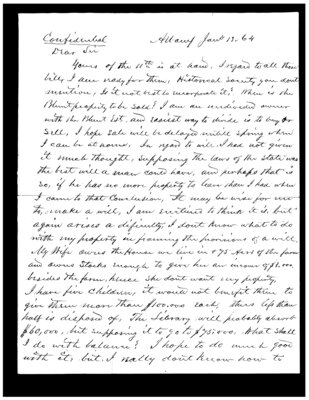 Confidential Albany Jan'y 13. 64
Dear Sir
Yours of the 11th is at hand, I regard to all these
bills, I am ready for them, Historical Society you dont
mention, Is it not best to incorporate it? When is the
Blunt property to be sold? I am an undivided owner
with the Blunt Est. and easiest way to divide is to buy or
sell, I hope sale will be delayed untill spring when
I can be at home. In regard to will, I had not given
it much thought, supposing the laws of the state was
the best will a man could have, and perhaps that is
so, if he has no more property to leave than I had when
I came to that conclusion, It may be wise for me
to make a will, I am inclined to think it is, but
again arises a difficulty, I dont know what to do
with my property in framing the provisions of a will.
My Wife owns the House we live in & 75 Acres of the farm
and owns stocks enough to give her an income of
besides the farm, hence she dont want my property,
I have five children, it would not benefit them to
give them more than $100,000 each, there less than
half is disposed of, The Library will probably absorb
$60,000, but supposing it to go to $75,000. What shall
I do with balance? I hope to do much good
with it, but I really dont know how to